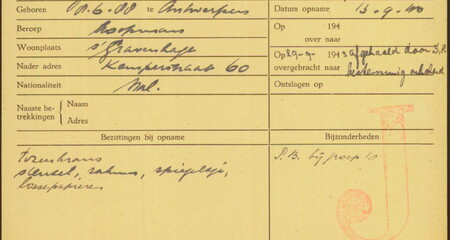 Geboren 8-6-88 te Antwerpen
Datum opname 13-9-40
Beroep Koopman
Op 194
over naar
Woonplaats s'Gravenhage
Op 29-9- 1943 afgehaald door S.P.
overgebracht naar bestemming onbekend
Nader adres Kemperstraat 60
Nationaliteit Ned.
Ontslagen op
Naaste betrekkingen
Naam
Adres
Bezittingen bij opname
Bijzonderheden
sleutel, zakmes, spiegeltje,
losse papieren
S.B. bij groep
J